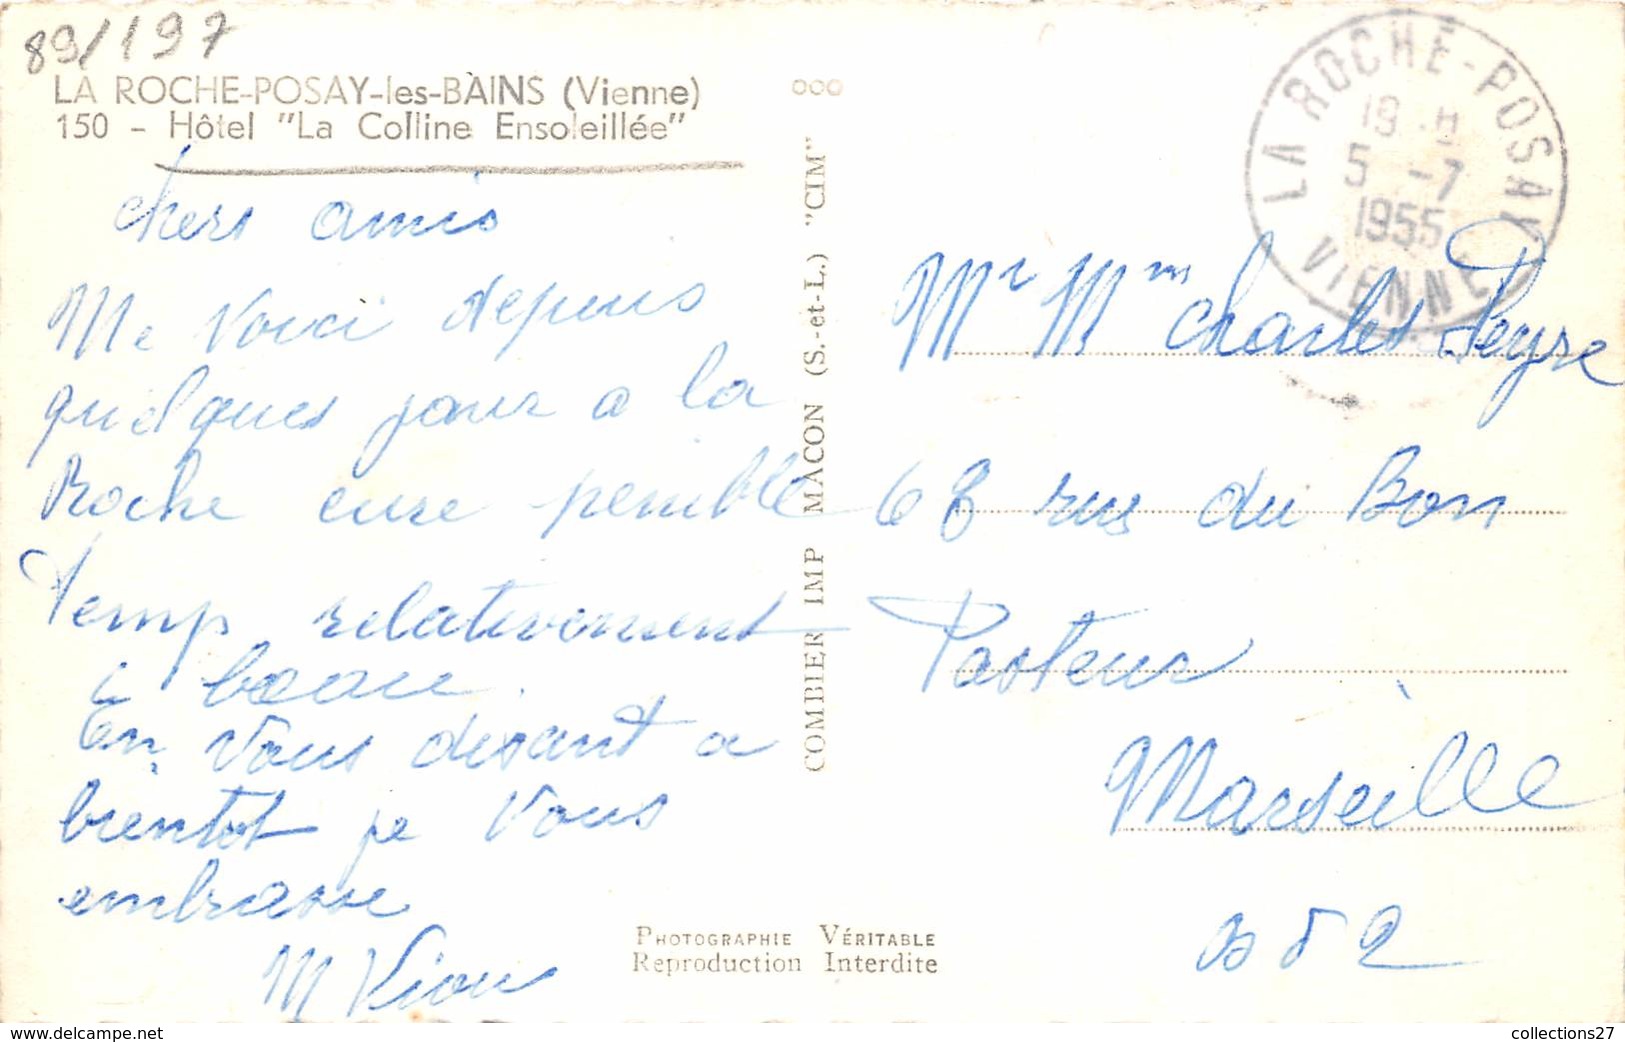 89/197
LA ROCHE-POSAY-les-BAINS (Vienne)
150 - Hôtel "La Colline Ensoleillée"
chers amis
Me Voici depuis
quelques jours a la
Roche cure penible
temp relativement
beau.
En Vous disant a
bientot je Vous
embrasse
M Viou
COMBIER IMP MACON (S.-et-L.) "CIM"
LA ROCHE-POSAY
5 -7
1955
VIENNE
Mr Mm Charles Peyre
68 rue du Bon
Pasteur
Marseille
B d R
PHOTOGRAPHIE VÉRITABLE
Reproduction Interdite
www.delcampe.net
collections27